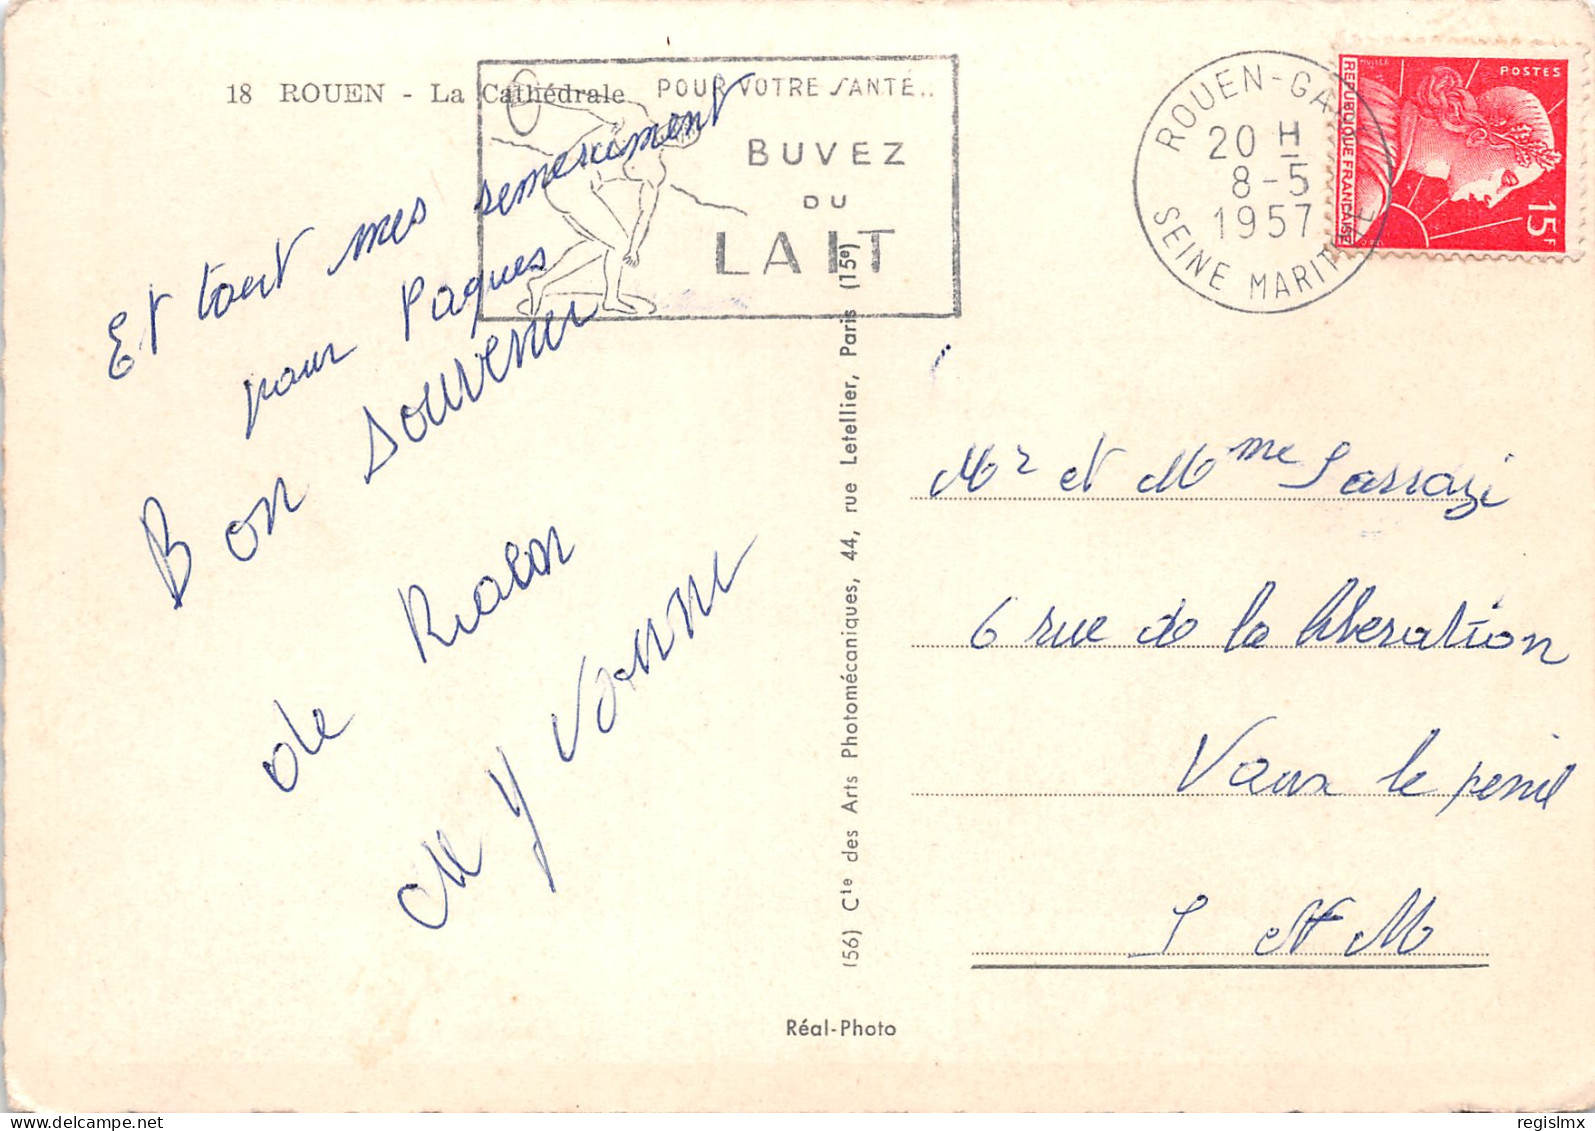 18 ROUEN - La Cathédrale
POUR VOTRE SANTÉ..
BUVEZ
DU
LAIT
ROUEN-GARE
20 H
8-5
1957
SEINE MARITIME
POSTES
REPUBLIQUE FRANÇAISE
15F
Et tout mes
pour Paques
Bon souvenir
de Rouen
M Yvonne
Mr et Mme Sarrazi
6 rue de la libération
Vaux le penil
S et M
(56) Cie des Arts Photomécaniques, 44, rue Letellier, Paris (15e)
Réal-Photo
delcampe.net
regislmx